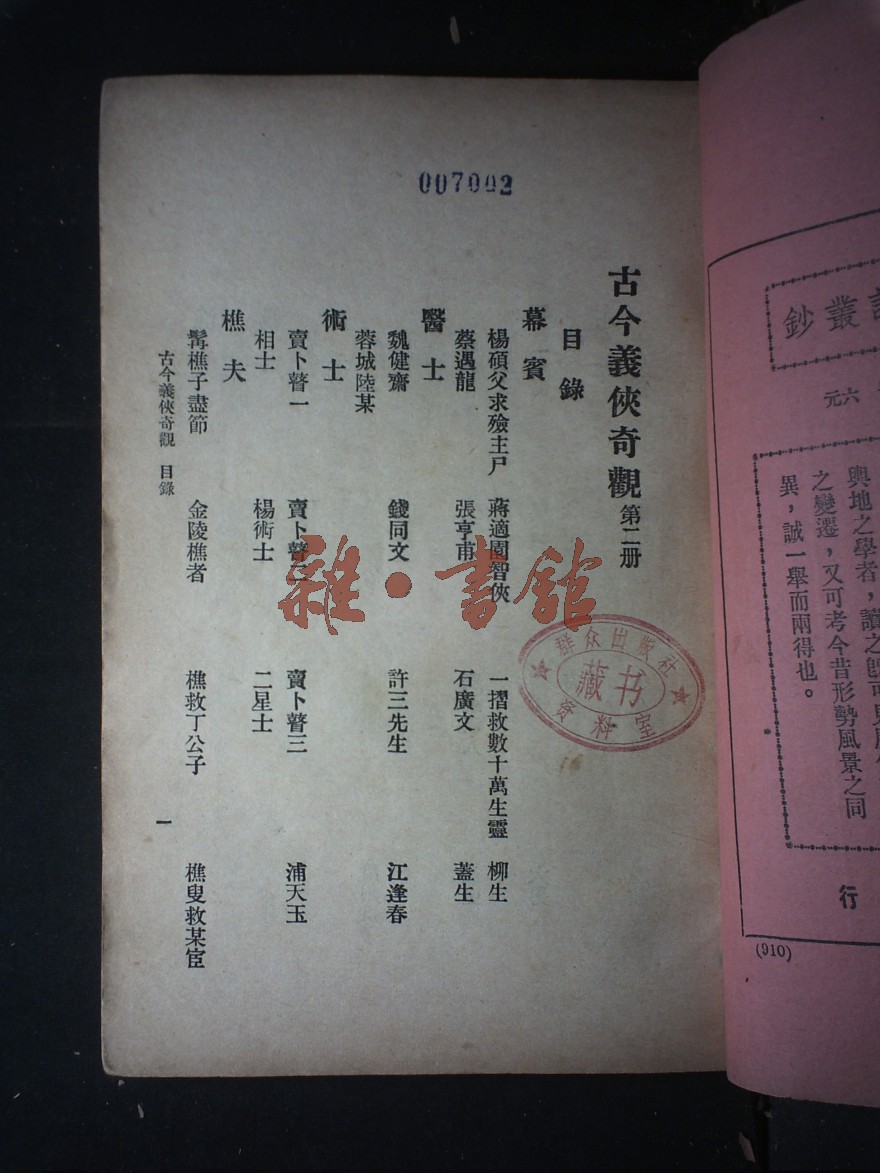 007002
古今義俠奇觀 第二册
目錄
幕賓
楊碩父求殮主尸 蔣適園智俠 一摺救數十萬生靈 柳生
蔡遇龍 張亨甫 石廣文 蓋生
醫士
魏健齋 錢同文 許三先生 江逢春
蓉城陸某
術士
賣卜瞽一 賣卜瞽二 賣卜瞽三 浦天玉
相士 楊術士 二星士
樵夫
髯樵子盡節 金陵樵者 樵救丁公子 樵叟救某宦
古今義俠奇觀 目錄 一
雜·書館
群众出版社
藏书
资料室
叢鈔
六元
輿地之學者，讀之
之變遷，又可考今昔形勢風景之同
異，誠一舉而兩得也。
行
(910)